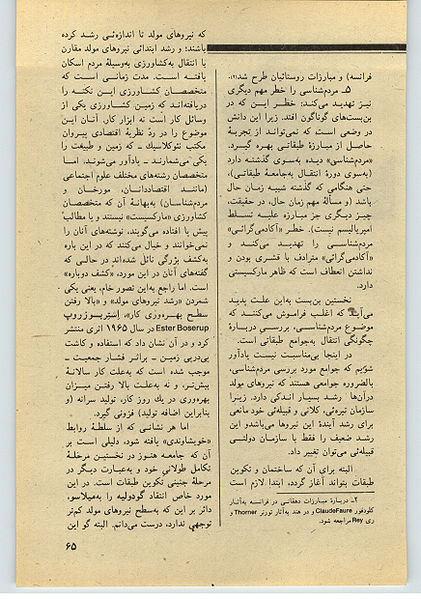 فرانسه) و مبارزات روستائیان طرح شد(۲).
۵ــ مردم‌شناسی را خطر مهم دیگری
نیز تهدید می‌کند؛ خطر این که در
بن‌بست‌های گوناگون افتد. زیرا این دانش
در وضعی است که نمی‌تواند از تجربهٔ
حاصل از مبارزهٔ طبقاتی بهره گیرد.
«مردم‌شناسی» دیده به‌سوی گذشته دارد
(به‌سوی دورهٔ انتقال به‌جامعهٔ طبقاتی)،
حتی هنگامی که گذشته شبیه زمان حال
باشد (و مسألهٔ مهم زمان حال، در حقیقت،
چیز دیگری جز مبارزه علیه تسلط
امپریالیسم نیست). خطر «آکادمی‌گرائی»
مردم‌شناسی را تهدید می‌کند و
«آکادمی‌گرائی» مترادف با قشری بودن و
نداشتن انعطاف است که ظاهر مارکسیستی
دارد.
نخستین بن‌بست به‌این علت پدید
می‌آید که اغلب فراموش می‌کنند که
موضوع مردم‌شناسی، بررسی دربارهٔ
چگونگی انتقال به‌جوامع طبقاتی است.
در اینجا بی‌مناسبت نیست یادآور
شویم که جوامع مورد بررسی مردم‌شناسی،
بالضروره جوامعی هستند که نیروهای مولد
درآن‌ها رشد بسیار اندکی دارد. زیرا
سازمان تیره‌ئی، کلانی و قبیله‌ئی خود مانعی
برای رشد آیندهٔ این نیروها می‌باشدو این
رشد ضعیف را فقط با سازمان دولتی
قبیله‌ئی می‌توان تغییر داد.
البته برای آن که ساختمان و تکوین
طبقات بتواند آغاز گردد، ابتدا لازم است
۲ــ دربارهٔ مبارزات دهقانی در فرانسه به‌آثار
کلودفور ClaudeFaure و در هند به‌آثار تورنر Thorner و
ری Rey مراجعه شود.
که نیروهای مولد تا اندازه‌ئی رشد کرده
باشند؛ و رشد ابتدائی نیروهای مولد مقارن
با انتقال به‌کشاورزی به‌وسیلهٔ مردم اسکان
یافته است. مدت زمانی است که
متخصصان کشاورزی این نکته را
دریافته‌اند که زمین کشاورزی یکی از
وسائل کار است نه ابزار کار. آنان این
موضوع را در ردّ نظریهٔ اقتصادی پیروان
مکتب نئوکلاسیك ــ که زمین و طبیعت را
یکی می‌شمارند ــ یادآور می‌شوند. اما
متخصصان رشته‌های مختلف علوم اجتماعی
(مانند اقتصاددانان، مورخان و
مردم‌شناسان) به‌بهانهٔ آن که متخصصان
کشاورزی «مارکسیست» نیستند و یا مطالب
پیش پا افتاده می‌گویند، نوشته‌های آنان را
نمی‌خوانند و خیال می‌کنند که در این باره
به‌کشف بزرگی نائل شده‌اند در حالی که
گفته‌های آنان در این مورد، «کشف دوباره»
است. اما راجع به‌این تصور خام، یعنی یکی
شمردن «رشد نیروهای مولد» و «بالا رفتن
سطح بهره‌وری کار»، اِستِربوزروپ
Ester Boserup در سال ۱۹۶۵ اثری منتشر
کرد و در آن نشان داد که استفاده و کاشت
پی‌درپی زمین ــ براثر فشار جمعیت ــ
موجب شده است که به‌علت کار سالانهٔ
بیش‌تر، و نه به‌علت بالا رفتن میزان
بهره‌وری در یك روز کار، تولید سرانه (و
بنابراین اضافه تولید) فزونی گیرد.
اما هر نشانی که از سلطهٔ روابط
«خویشاوندی» یافته شود، دلیلی است بر
آن که جامعه هنوز در نخستین مرحلهٔ
تکامل طولانی خود و به‌عبارت دیگر در
مرحلهٔ جنینی تکوین طبقات است. در این
مورد خاص انتقاد گودولیه را به‌میلاسو،
دائر بر این که به‌سطح نیروهای مولد کم‌تر
توجهی ندارد، درست می‌دانم. البته گو این
۶۵